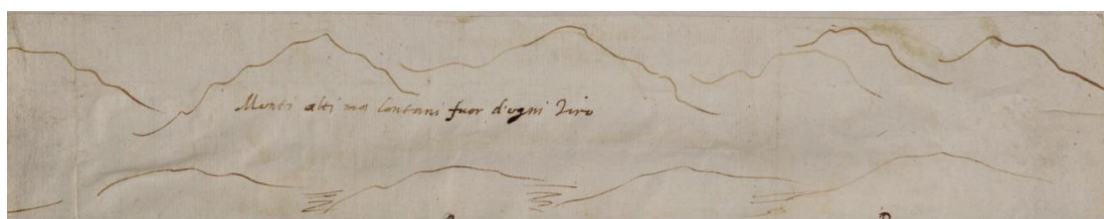 Monti alti ma lontani fuor d'ogni Tiro